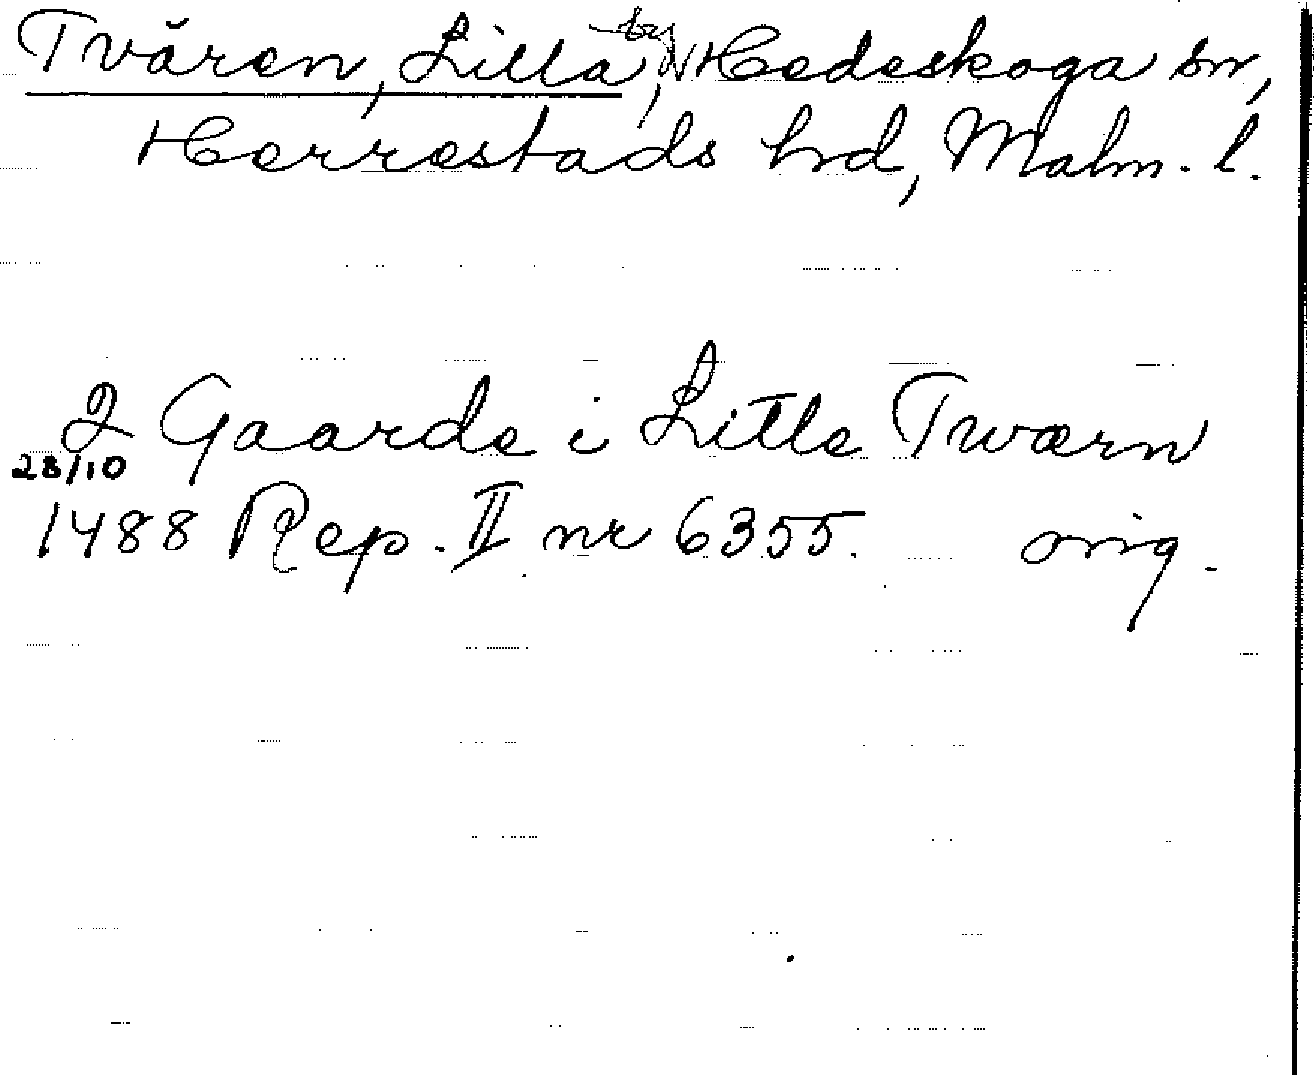 Tvären, Lilla, by, Hedeskoga sn,
Herrestads hd, Malm. l.
2 Gaarde i Litle Tværn
28/10
1488 Rep. II nr 6355. orig.